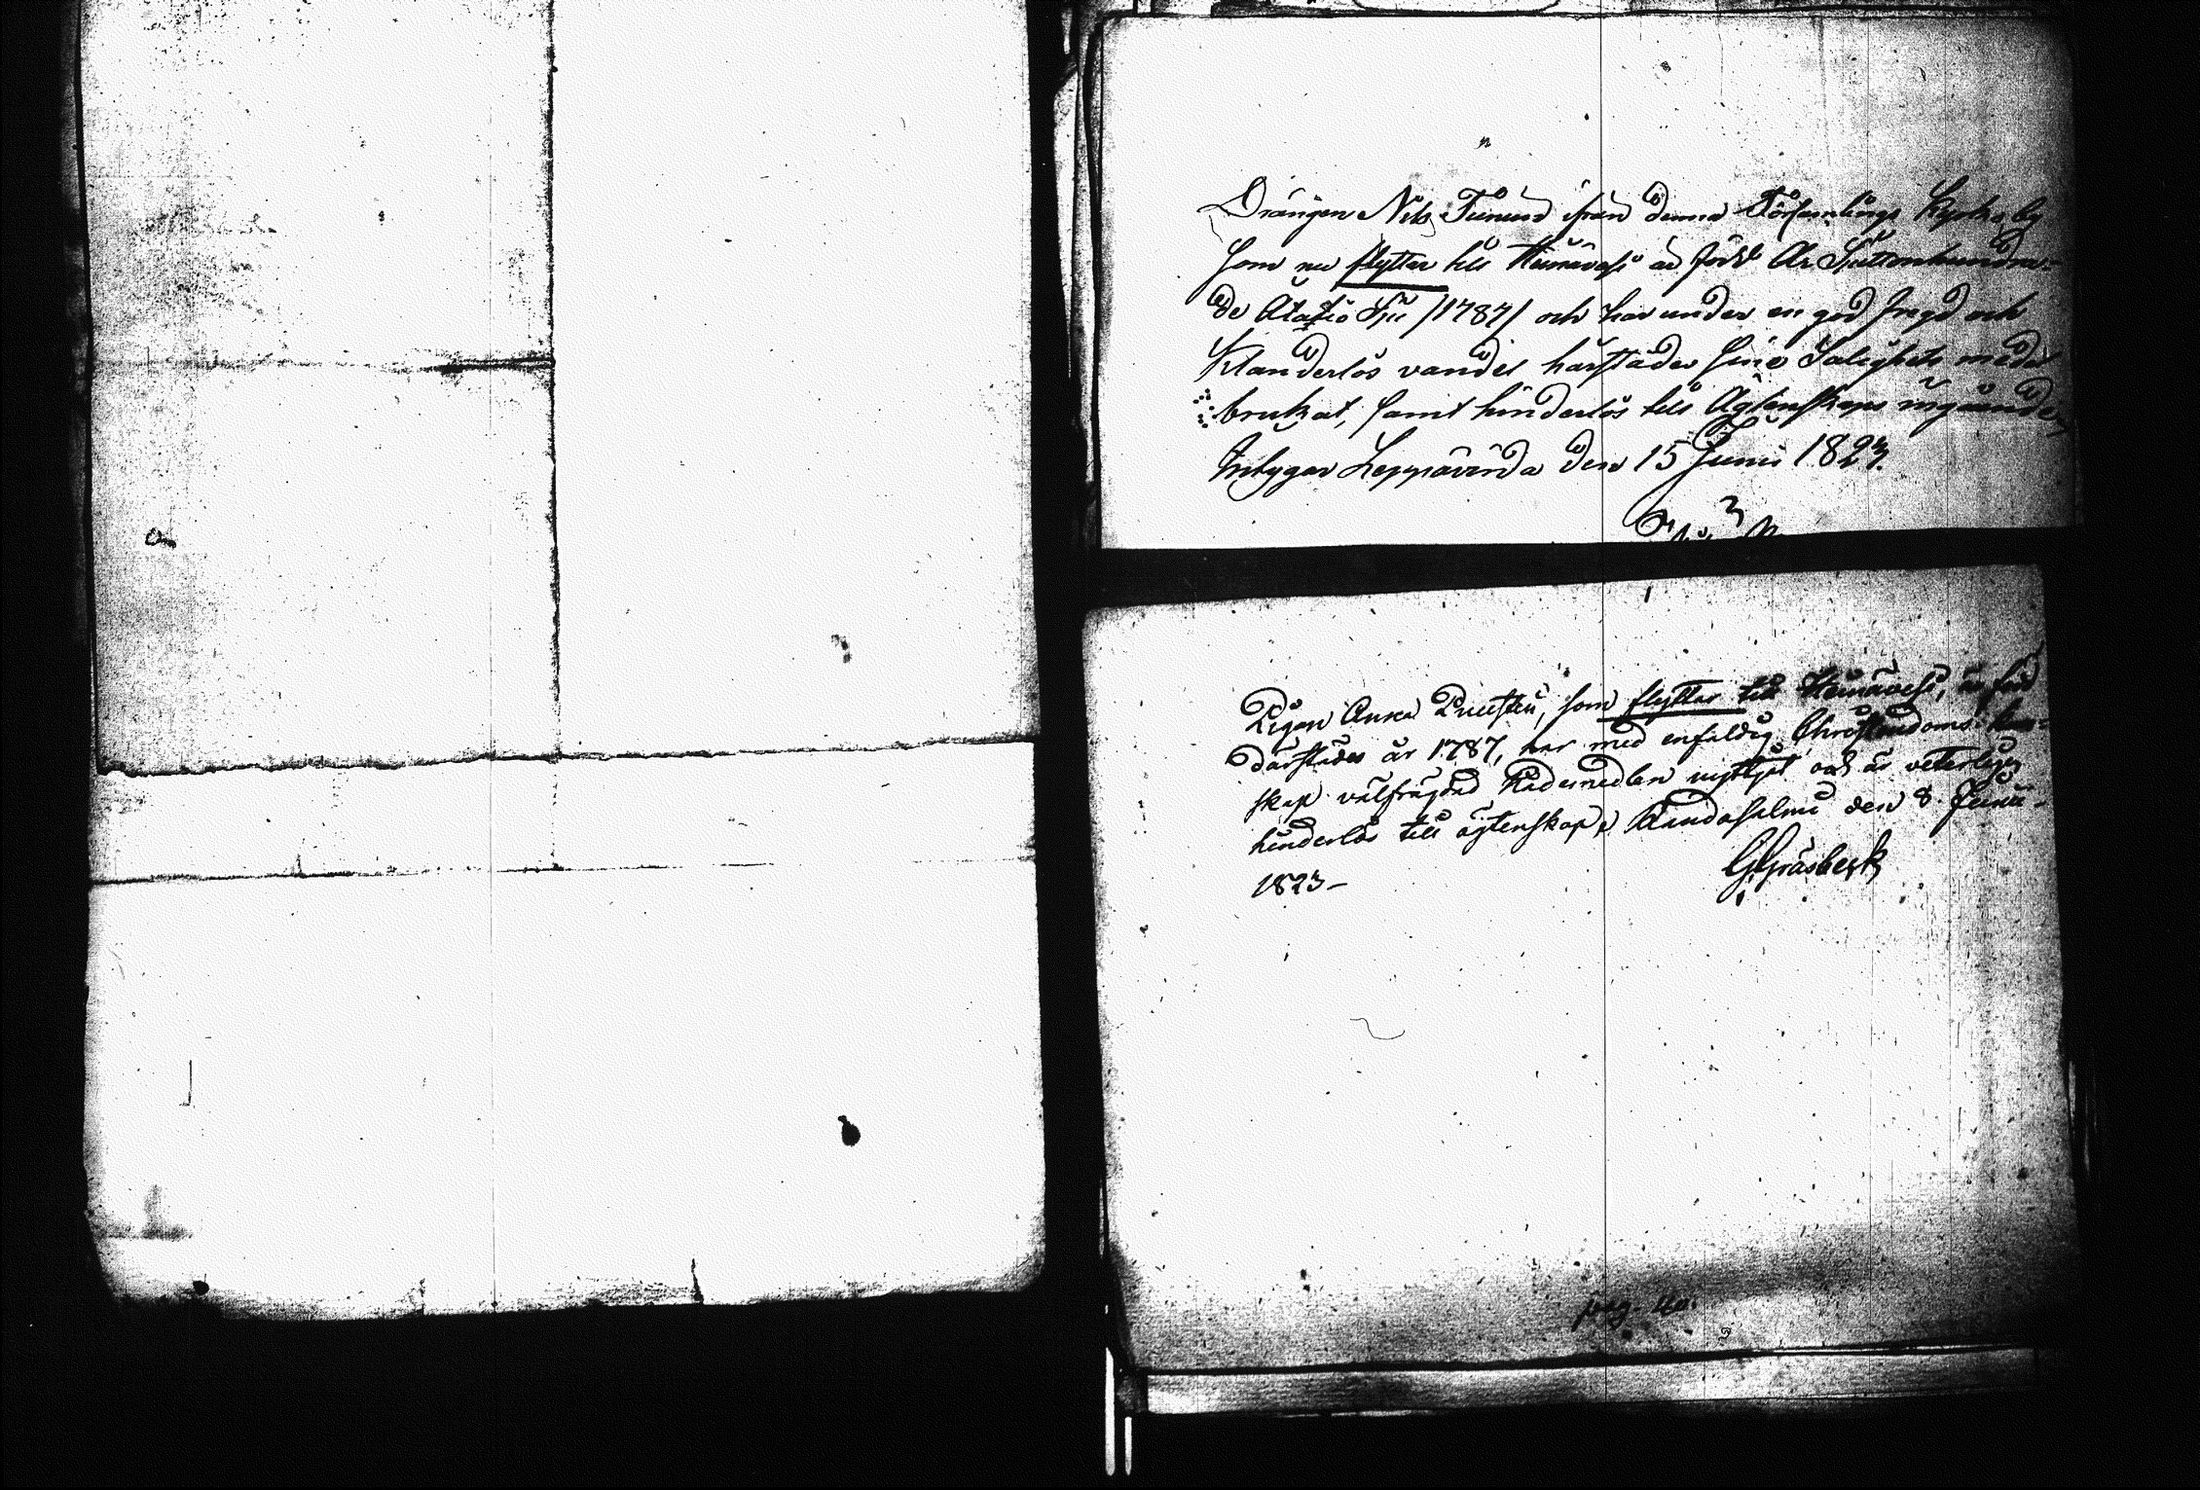 Drängen Nils Tunund ifrån denna Församlings Kyrkoby
som nu flyttar till Heinävesi är född År Sjuttonhundra-
de Åtatio Sju /1787/ och har under en god fregd och
Klanderlös vandel härstädes sine Salighets medel
brukat, samt hinderlös till Ägtenskaps ingående,
Intygar Leppävirda den 15 Junii 1823.
Pigan Anna Puustin, som flyttar till Heinävesi, är född
därstädes år 1787, har med enfaldig Christendoms kun-
skap välfrägdad Nådemedlen nyttjat och är veterligen
hinderlös till ägtenskap, Randasalmi den 8. Junii
1823 –
G Gråsbeck
pag.